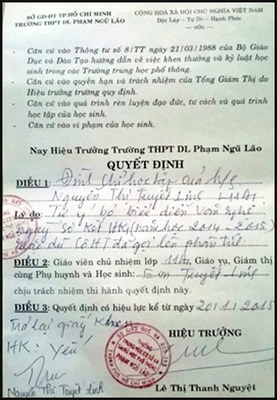 SỞ GD-ĐT TP.HỒ CHÍ MINH
TRƯỜNG THPT DL PHẠM NGŨ LÃO
CỘNG HOÀ XÃ HỘI CHỦ NGHĨA VIỆT NAM
Độc Lập - Tự Do - Hạnh Phúc
- Căn cứ vào Thông tư số 8/TT ngày 21/03/1988 của Bộ Giáo
Dục và Đào Tạo hướng dẫn về việc khen thưởng và kỷ luật học
sinh trong các Trường trung học phổ thông.
- Căn cứ vào quyền hạn và trách nhiệm của Tổng Giám Thị do
Hiệu trưởng trường quy định.
- Căn cứ vào quá trình rèn luyện đạo đức, tư cách và quá trình
học tập của học sinh.
- Căn cứ vào vi phạm của học sinh.
Nay Hiệu Trưởng Trường THPT DL Phạm Ngũ Lão
QUYẾT ĐỊNH
ĐIỀU 1: Đình chỉ học tập của h/s
Nguyễn Thị Tuyết Linh
Lý do: Tự ý bỏ biểu diễn văn nghệ
ngày sơ kết HKI (năm học 2014 - 2015)
mặc dù Cô HT đã gọi lên phân tích.
ĐIỀU 2: Giáo viên chủ nhiệm lớp Giáo vụ, Giám thị
cùng Phụ huynh và Học sinh: Tuyết Linh
chịu trách nhiệm thi hành quyết định này.
ĐIỀU 3: Quyết định có hiệu lực kể từ ngày 20/1/2015
Trả lại giấy khen
HK: Yếu
HIỆU TRƯỞNG
Nguyễn Thị Tuyết Linh
Lê Thị Thanh Nguyệt